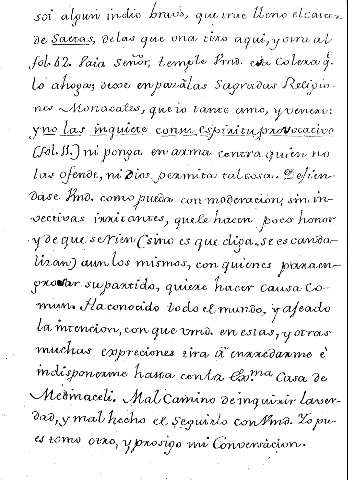 soi algun indio bravo, que trae lleno el carcax
de Saetas, de las que una tiro aqui, y otra al
fol. 62. Paia Señor, temple Vmd. esta Colera q.e
lo ahoga; dexe en paz à las Sagradas Religio-
nes Monacales, que io tanto amo, y venero:
y no las inquiete con su espiritu provocativo
(fol. 11.) ni ponga en arma contra quien no
las ofende, ni Dios permita tal cosa. Defien-
dase Vmd. como pueda con moderacion, sin in-
vectivas irritantes, que le hacen poco honor
y de que se rien (sino es que diga, se escanda-
lizan) aun los mismos, con quienes para en-
grosar su partido, quiere hacer causa Co-
mun. Ha conocido todo el mundo, y afeado
la intencion, con que vmd. en estas, y otras
muchas expreciones tira à enredarme è
indisponerme hasta con la Ex.ma Casa de
Medinaceli. Mal Camino de inquirir la ver-
dad, y mal hecho el seguirlo con Vmd. Yo pu-
es tomo otro, y prosigo mi Conversacion.